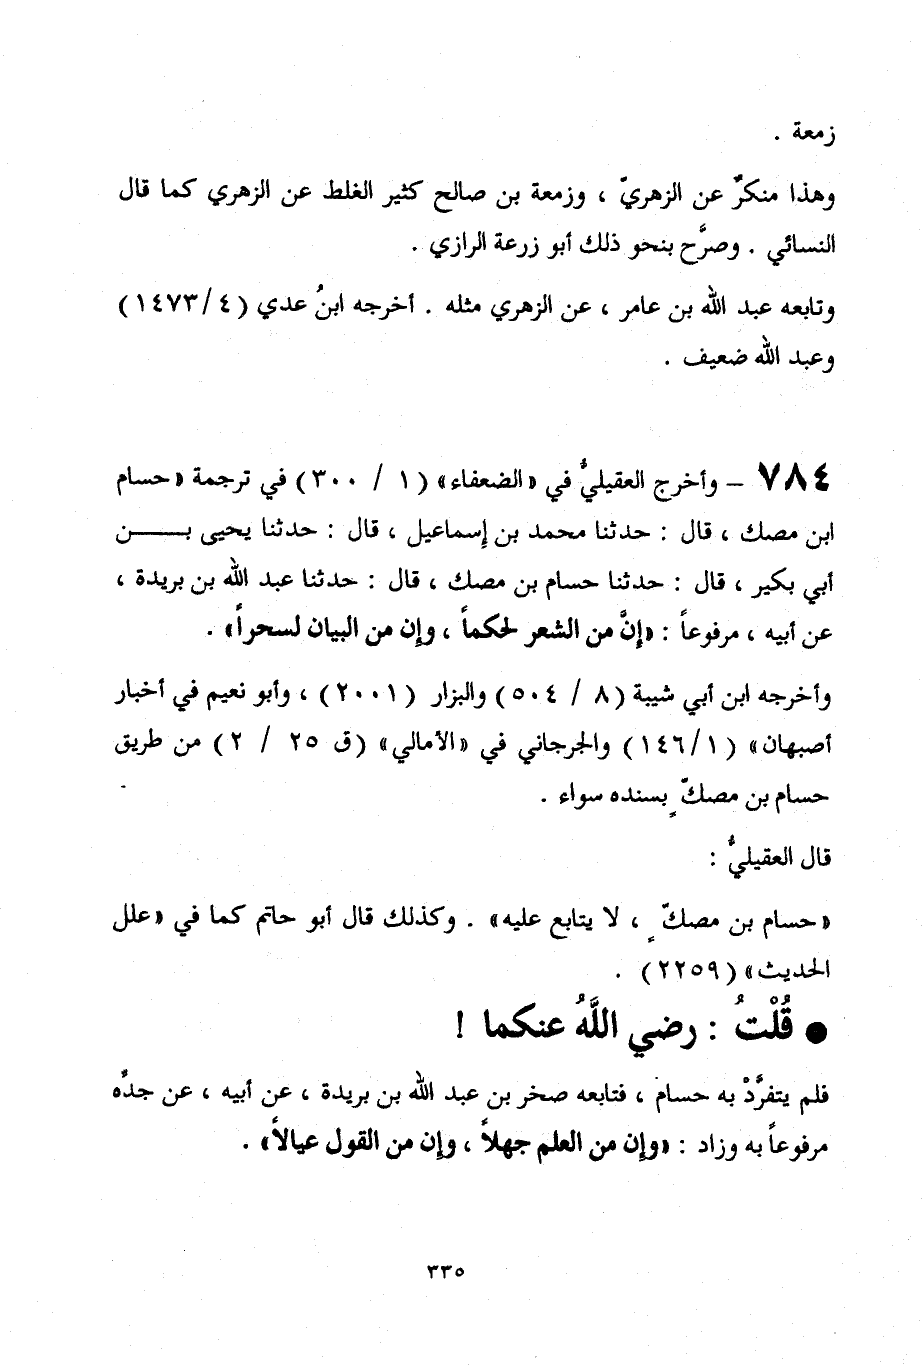 زمعة .
وهذا منكرٌ عن الزهريّ ، وزمعة بن صالح كثير الغلط عن الزهري كما قال
النسائي . وصرَّح بنحو ذلك أبو زرعة الرازي .
وتابعه عبد الله بن عامر ، عن الزهري مثله . أخرجه ابنُ عدي (٤/ ١٤٧٣)
وعبد الله ضعيف .
٧٨٤ – وأخرج العقيليُّ في «الضعفاء» (١ / ٣٠٠) في ترجمة «حسام
ابن مصك ، قال : حدثنا محمد بن إسماعيل ، قال : حدثنا يحيى بـــــن
أبي بكير ، قال : حدثنا حسام بن مصك ، قال : حدثنا عبد الله بن بريدة ،
عن أبيه ، مرفوعاً : «إنَّ من الشعر لحكماً ، وإن من البيان لسحراً» .
وأخرجه ابن أبي شيبة (٨ / ٥٠٤) والبزار (٢٠٠١) ، وأبو نعيم في أخبار
أصبهان» (١/ ١٤٦) والجرجاني في «الأمالي» (ق ٢٥ / ٢) من طريق
حسام بن مصكّ ٍ بسنده سواء .
قال العقيليُّ :
«حسام بن مصكّ ٍ ، لا يتابع عليه» . وكذلك قال أبو حاتم كما في «علل
الحديث» (٢٢٥٩) .
● قُلْتُ : رضي اللَّهُ عنكما !
فلم يتفرَّدْ به حسام ، فتابعه صخر بن عبد الله بن بريدة ، عن أبيه ، عن جدِّه
مرفوعاً به وزاد : «وإن من العلم جهلاً ، وإن من القول عيالاً» .
٣٣٥